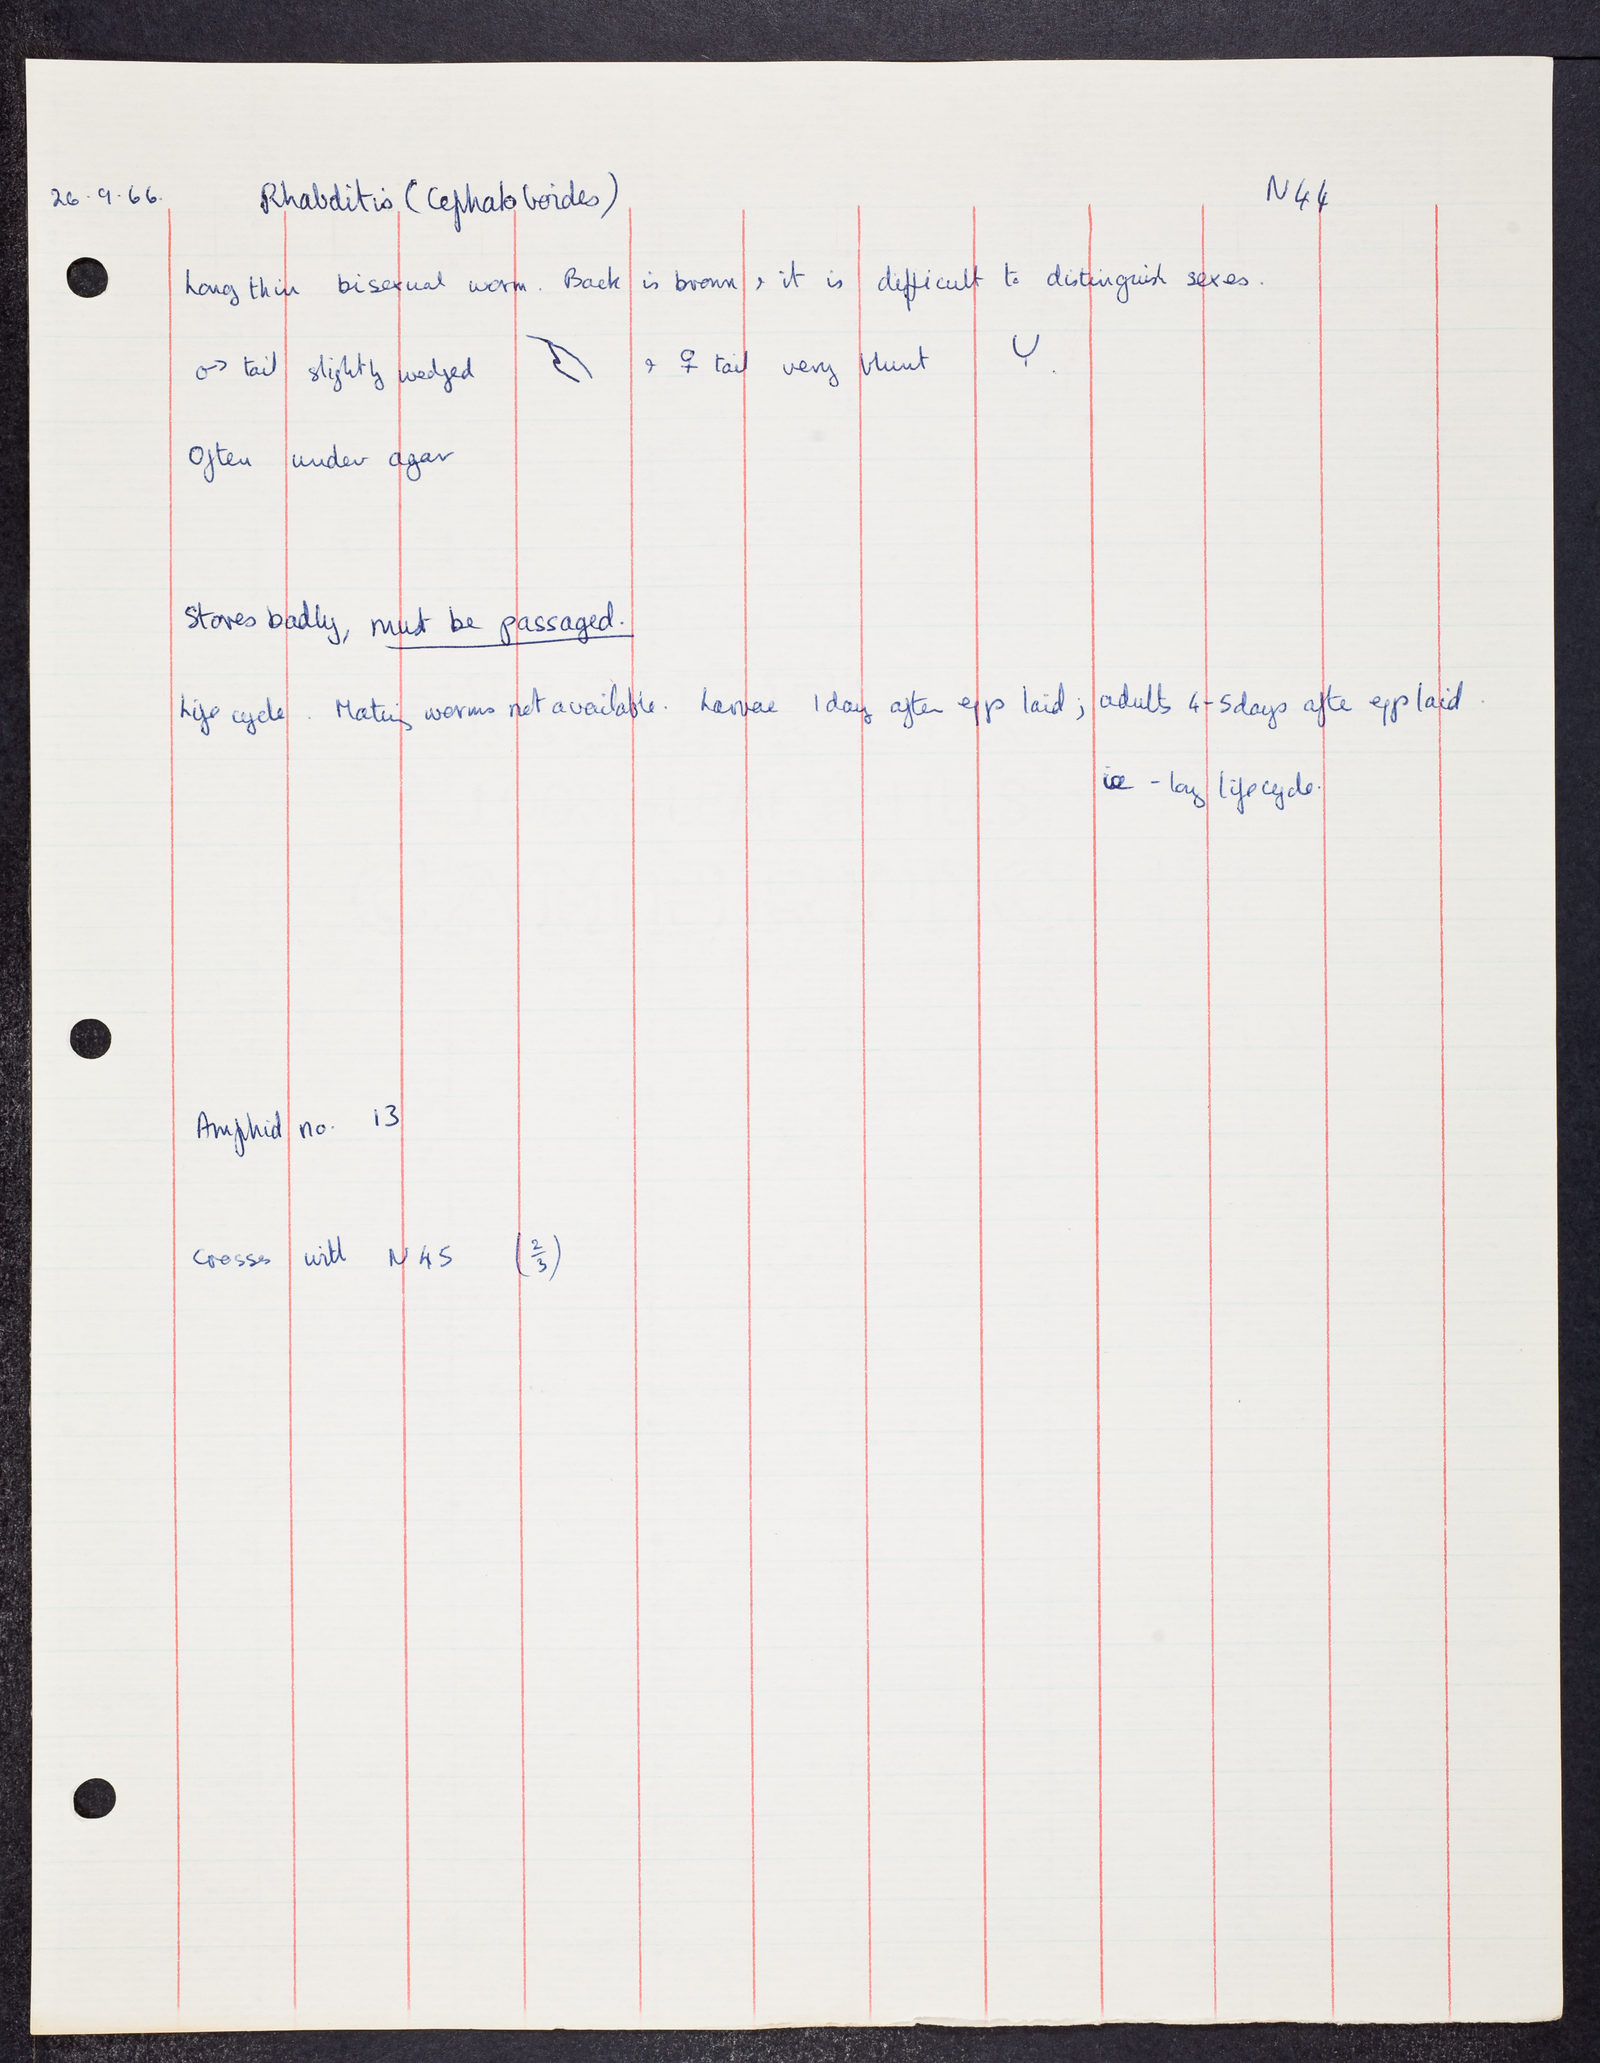 26.9.66. Rhabditis (Cephaloboides) N44
Long thin bisexual worm. Back is brown & it is difficult to distinguish sexes.
♂ tail slightly wedged & ♀ tail very blunt
Often under agar
Stores badly, must be passaged.
Life cycle. Mating worms not available. Larvae 1 day after eggs laid; adults 4-5 days afte eggs laid.
ie - long life cycle.
Amphid no. 13
Crosses with N45 (2/3)